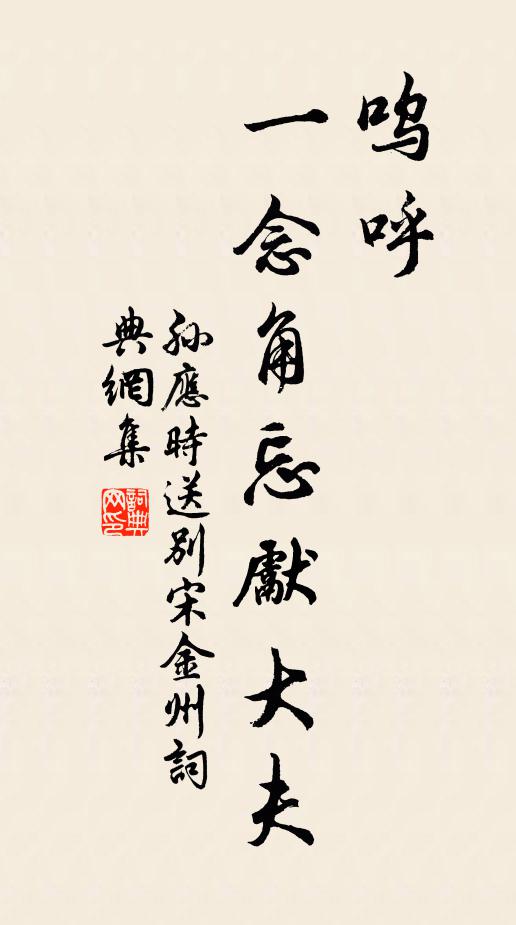 呜呼
一念角忘獻大夫
孫應時送別宋金州詞
典網集
詞典網印